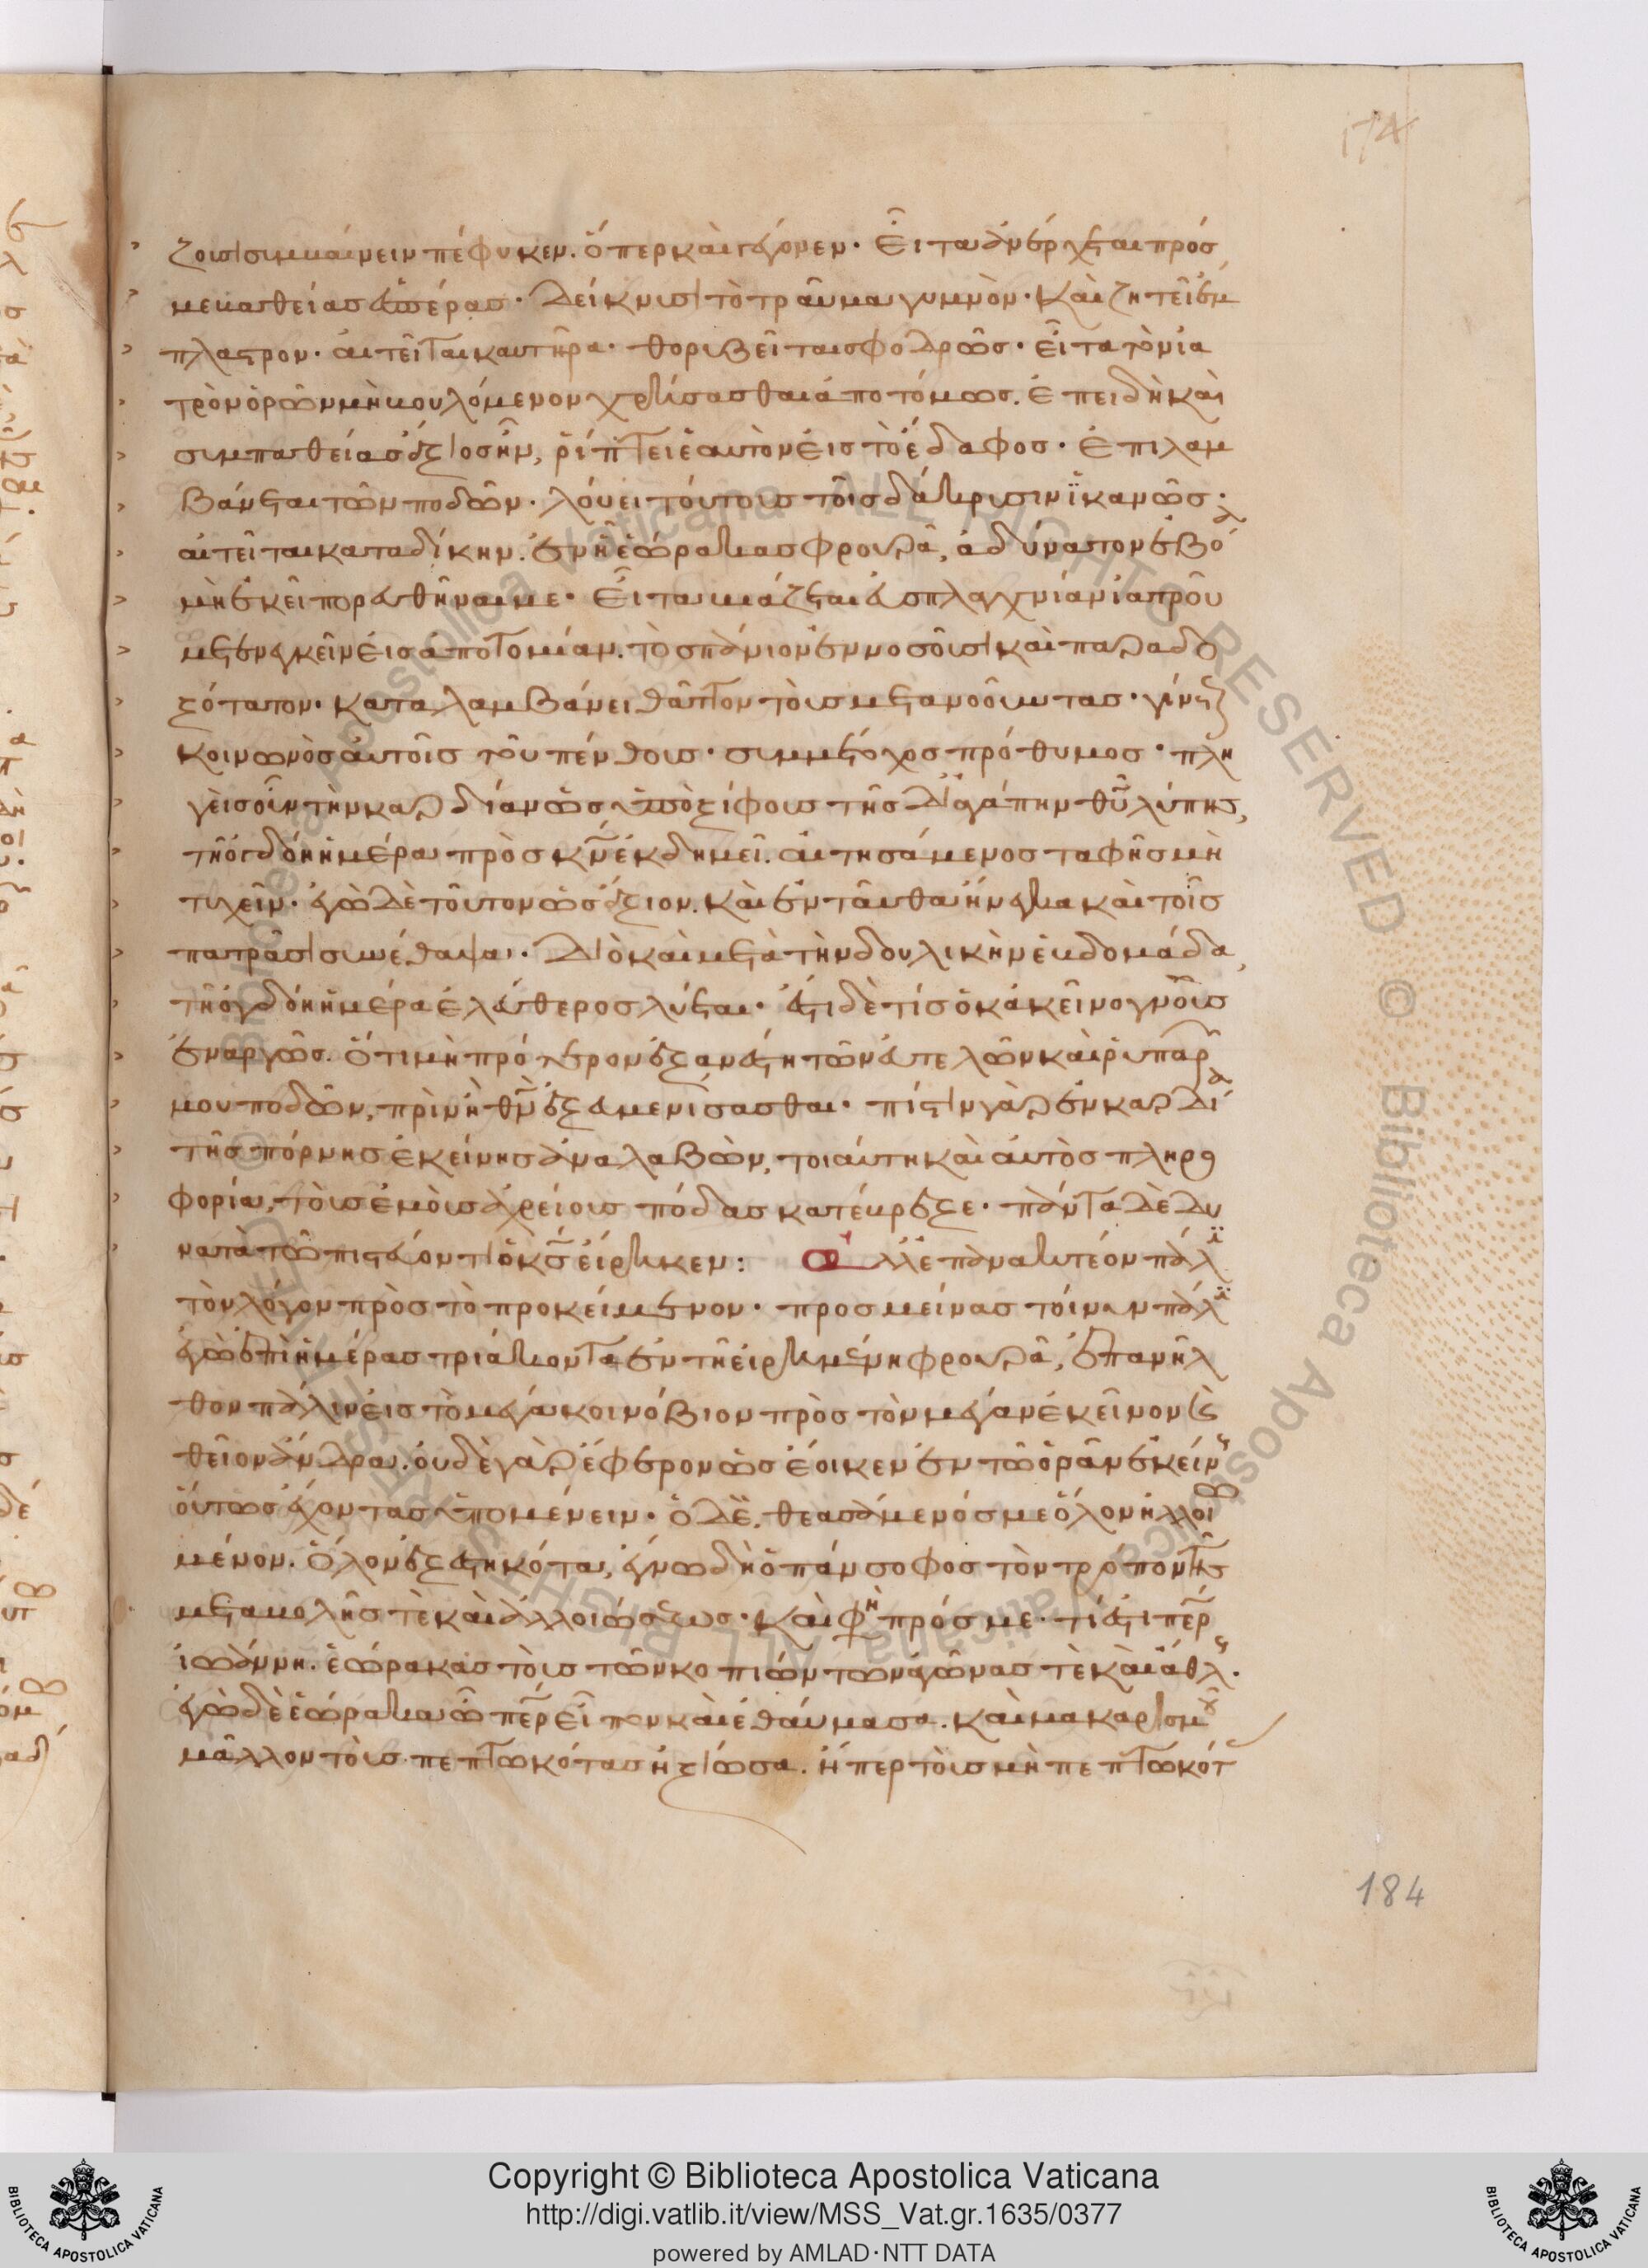 174
ζουσι συμβαίνειν πέφυκεν. ὅπερ καὶ γέγονεν· Εἶτα ἀνέρχεται πρός
με βαθείας ἑσπέρας· Δείκνυσι τὸ τραῦμα γυμνὸν· Καὶ ζητεῖ ἔμ
πλαστρον· αἰτεῖται καυτῆρα· θορυβεῖται σφοδρῶς· εἶτα τὸν ἰα
τρὸν ὁρῶν μὴ βουλόμενον χρήσασθαι ἀποτόμως. ἐπειδὴ καὶ
συμπαθείας ἄξιος ἦν, ῥίπτει ἑαυτὸν εἰς τὸ ἔδαφος· Ἐπιλαμ
βάνεται τῶν ποδῶν· λούει τούτους τοῖς δάκρυσιν ἱκανῶς·
αἰτεῖται καταδίκην. ἐν ᾗ ἑώρακας φρουρᾷ, ἀδύνατον ἐβόα
μὴ ἐκεῖ πορευθῆναί με· Εἶτα βιάζεται εὐσπλαγχνίαν ἰατροῦ
μετενεγκεῖν εἰς ἀποτομίαν. τὸ σπάνιον ἐν νοσοῦσι καὶ παραδο
ξότατον. καταλαμβάνει θᾶττον τοὺς μετανοοῦντας· γίνεται
κοινωνὸς αὐτοῖς τοῦ πένθους· συμμέτοχος πρόθυμος· πλη
γεὶς οὖν τὴν καρδίαν ὡς ὑπὸ ξίφους τῆς δι' ἀγάπην θυ λύπης,
τῇ ὀγδόῃ ἡμέρα πρὸς κν ἐκδημεῖ. αἰτησάμενος ταφῆς μὴ
τυχεῖν· ἐγὼ δὲ τοῦτον ὡς ἄξιον. καὶ ἐνταῦθα ἤνεγκα καὶ τοῖς
πατράσι συνέθαψα· Διὸ καὶ μετὰ τὴν δουλικὴν ἑβδομάδα,
τῇ ὀγδόῃ ἡμέρα ἐλεύθερος λύεται· ἔστι δὲ τίς ὃ κἀκεῖνο γνοὺς
ἐναργῶς. ὅτι μὴ πρότερον ἐξανέστη τῶν εὐτελῶν καὶ ῥυπαρῶν
μου ποδῶν, πρὶν ἢ θν ἐξευμενίσασθαι· πίστιν γὰρ ἐν καρδία
τῆς πόρνης ἐκείνης ἀναλαβὼν, τοιαύτη καὶ αὐτὸς πληρο
φορία, τοὺς ἐμοὺς ἀχρείους πόδας κατέβρεξε· πάντα δὲ δυ
νατὰ τῷ πιστεύοντι ὁ κς εἴρηκεν: Ἀλλ' ἐπανακτέον πάλιν
τὸν λόγον πρὸς τὸ προκείμενον· προσμείνας τοίνυν πάλιν
ἐγὼ ἐπὶ ἡμέρας τριάκοντα ἐν τῇ εἰρημένῃ φρουρᾷ, ἐπανῆλ
θον πάλιν εἰς τὸ μέγα κοινόβιον πρὸς τὸν μέγαν ἐκεῖνον καὶ
θεῖον ἄνδρα. οὐδὲ γὰρ ἔφερον ὡς ἔοικεν ἐν τῷ ὁρᾶν ἐκείνους
οὕτως ἔχοντας ὑπομένειν· ὁ δὲ, θεασάμενός με ὅλον ἠλλοιω
μένον. ὅλον ἐξεστηκότα, ἔγνω δὴ ὁ πάνσοφος τὸν τρόπον τῆς
μεταβολῆς τὲ καὶ ἀλλοιώσεως· Καὶ φη πρός με· τί ἔστι περ
ἰωάννη. ἑώρακας τοὺς τῶν κοπιώντων ἀγῶνας τὲ καὶ ἄθλους.
ἐγὼ δὲ ἑώρακα ὦ περ εἶπον καὶ ἐθαύμασα. καὶ μακαρισμοῦ
μᾶλλον τοὺς πεπτωκότας ἠξίωσα. ἤπερ τοὺς μὴ πεπτωκότ
184
Copyright © Biblioteca Apostolica Vaticana
http://digi.vatlib.it/view/MSS_Vat.gr.1635/0377
powered by AMLAD·NTT DATA